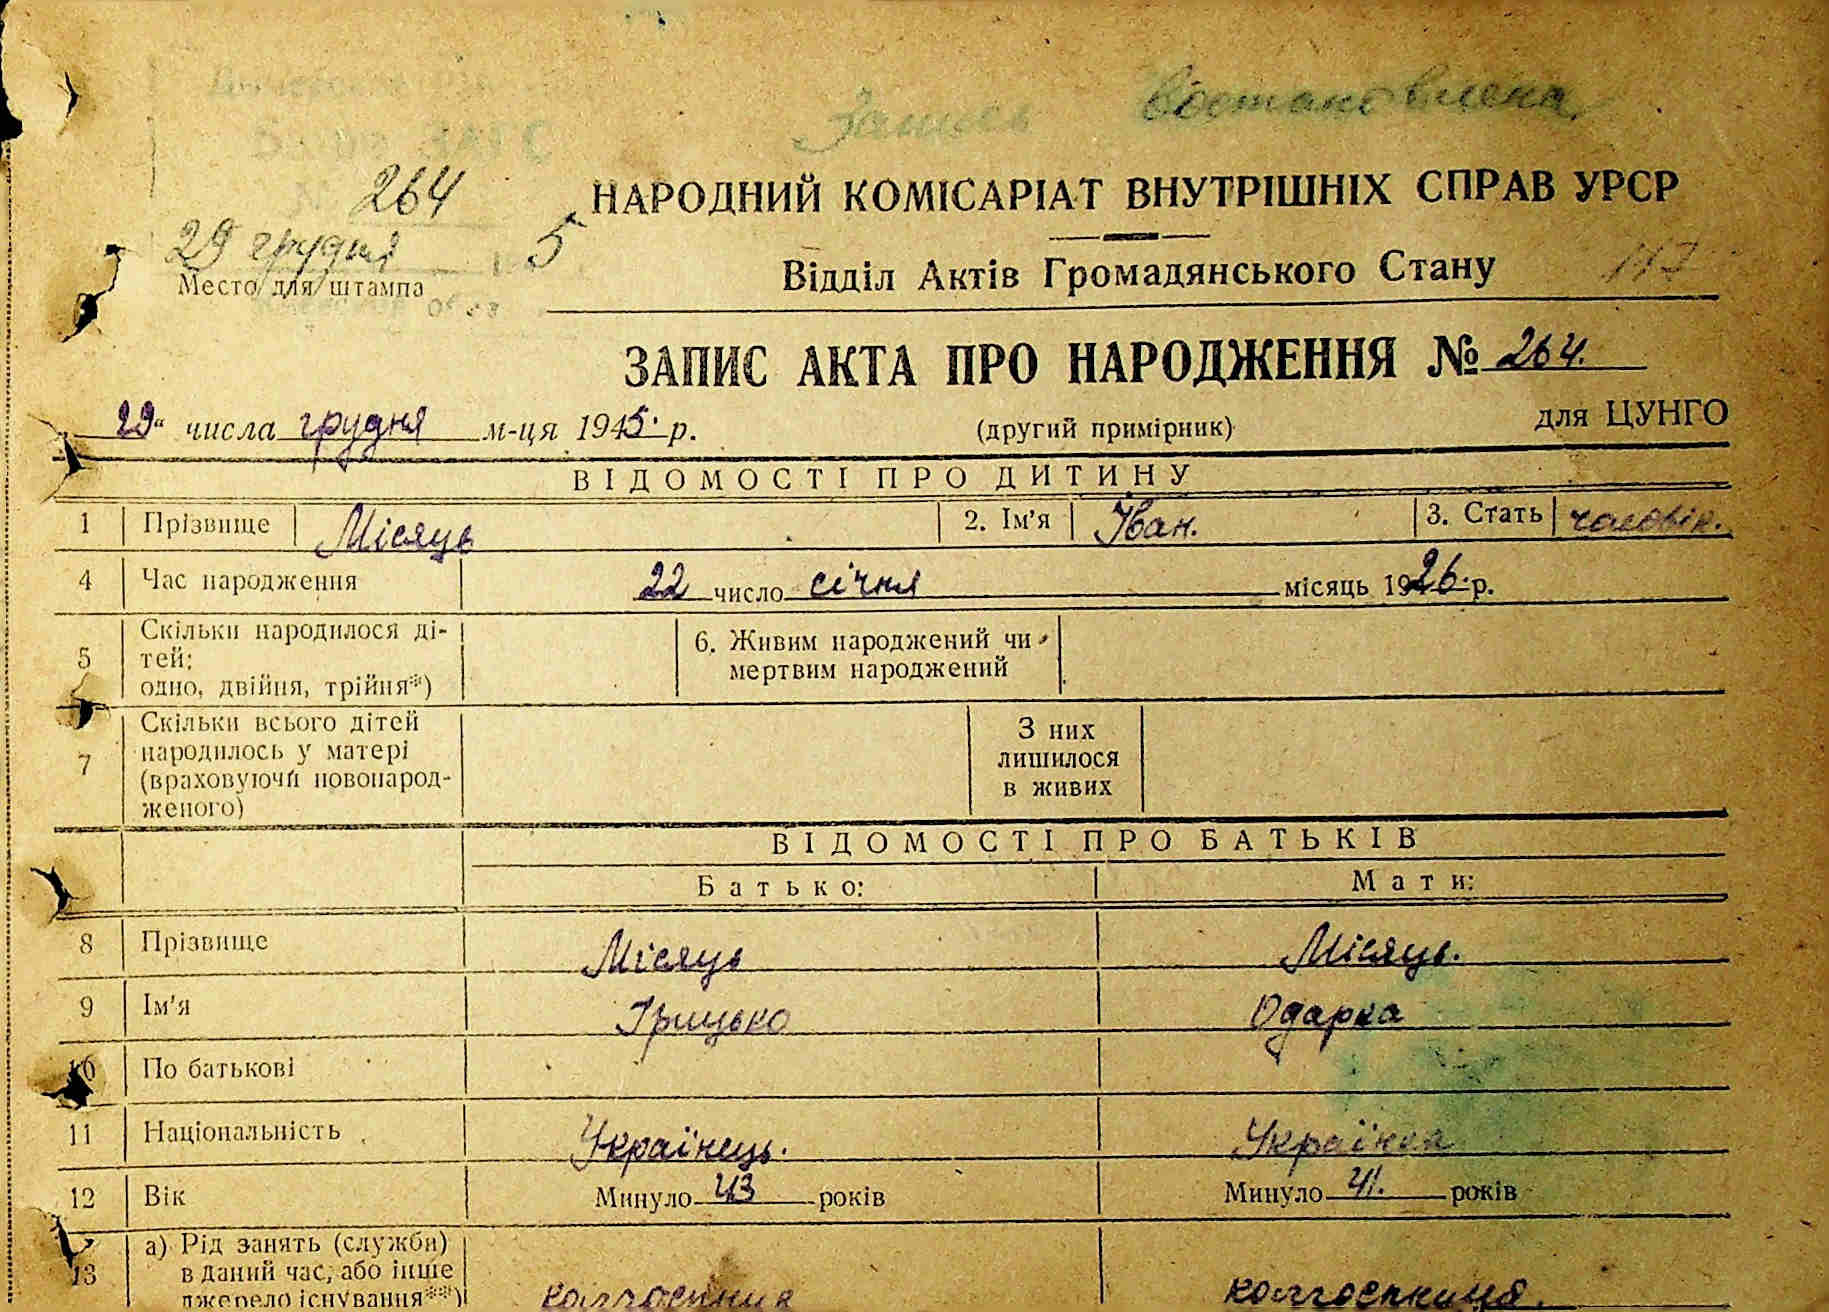 Запись Востановлена
ЗАГС
№ 264
29 грудня 5
Место для штампа
НАРОДНИЙ КОМІСАРІАТ ВНУТРІШНІХ СПРАВ УРСР
Відділ Актів Громадянського Стану 117
ЗАПИС АКТА ПРО НАРОДЖЕННЯ № 264.
29" числа грудня м-ця 1945. р. (другий примірник) для ЦУНГО
ВІДОМОСТІ ПРО ДИТИНУ
1 Прізвище Місяць 2. Ім'я Іван. 3. Стать чоловік.
4 Час народження 22 число січня місяць 1926. р.
5 Скільки народилося дітей: одно, двійня, трійня*) 6. Живим народжений чи мертвим народжений
7 Скільки всього дітей народилось у матері (враховуючи новонародженого) З них лишилося в живих
ВІДОМОСТІ ПРО БАТЬКІВ
Батько: Мати:
8 Прізвище Місяць Місяць.
9 Ім'я Грицько Одарка
10 По батькові
11 Національність Українець. Українка
12 Вік Минуло 43 років Минуло 41. років
13 а) Рід занять (служби) в даний час, або інше джерело існування**) колгоспник колгоспниця.